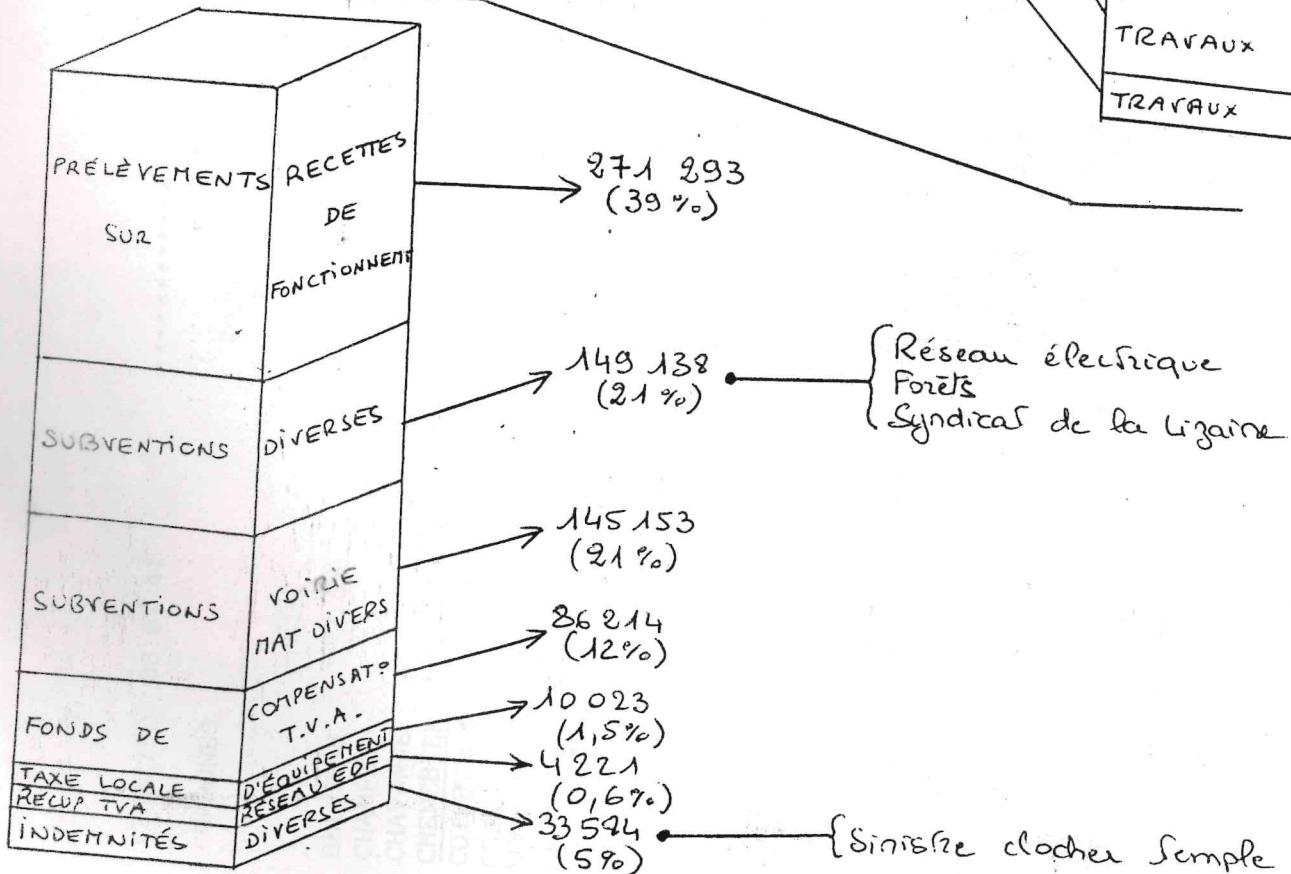 TRAVAUX
TRAVAUX
PRÉLÈVEMENTS
SUR
RECETTES
DE
FONCTIONNEMT
271 293
(39 %)
SUBVENTIONS
DIVERSES
149 138
(21 %)
Réseau électrique
Forêts
Syndicat de la Lizaine
SUBVENTIONS
VOIRIE
MAT DIVERS
145 153
(21 %)
FONDS DE
COMPENSATº
T.V.A.
86 214
(12%)
TAXE LOCALE
D'ÉQUIPEMENT
10 023
(1,5%)
RÉCUP TVA
RÉSEAU EDF
4 221
(0,6%)
INDEMNITÉS
DIVERSES
33 584
(5%)
Sinistre clocher temple